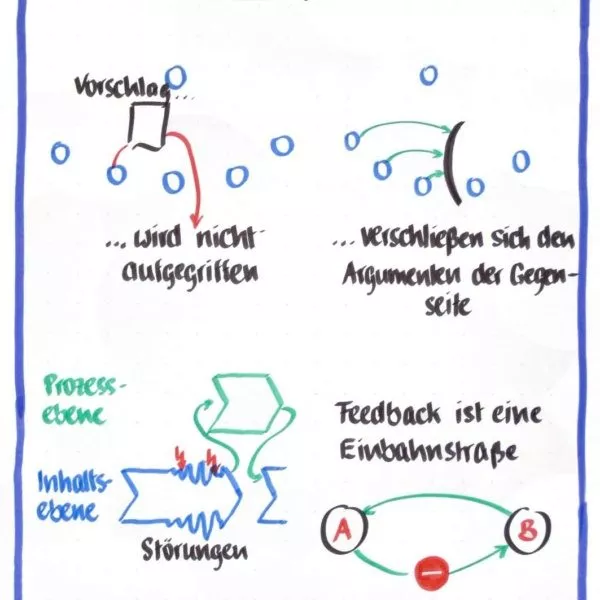 Vorschlag...
...wird nicht
aufgegriffen
...verschließen sich den
Argumenten der Gegen-
seite
Prozess-
ebene
Inhalts-
ebene
Störungen
Feedback ist eine
Einbahnstraße
A
B